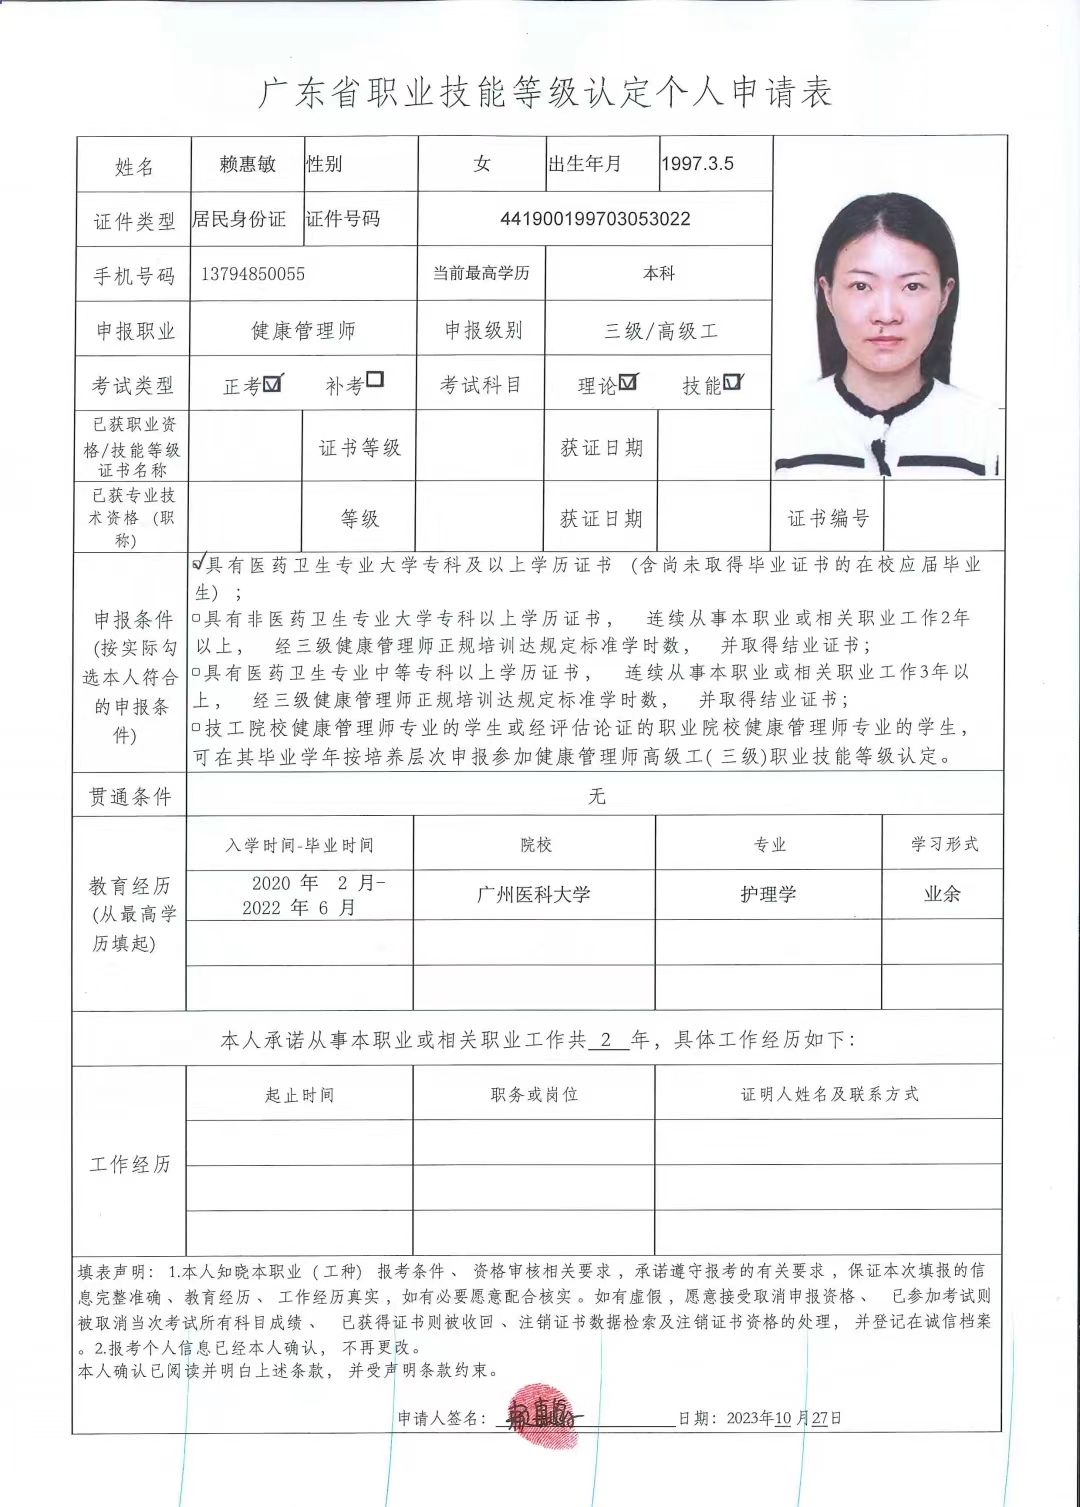 广东省职业技能等级认定个人申请表
姓名 赖惠敏 性别 女 出生年月 1997.3.5
证件类型 居民身份证 证件号码 441900199703053022
手机号码 13794850055 当前最高学历 本科
申报职业 健康管理师 申报级别 三级/高级工
考试类型 正考☑ 补考□ 考试科目 理论☑ 技能☑
已获职业资格/技能等级证书名称 证书等级 获证日期
已获专业技术资格(职称) 等级 获证日期 证书编号
申报条件(按实际勾选本人符合的申报条件)
☑具有医药卫生专业大学专科及以上学历证书 (含尚未取得毕业证书的在校应届毕业
生) ;
□具有非医药卫生专业大学专科以上学历证书, 连续从事本职业或相关职业工作2年
以上, 经三级健康管理师正规培训达规定标准学时数, 并取得结业证书;
□具有医药卫生专业中等专科以上学历证书, 连续从事本职业或相关职业工作3年以
上, 经三级健康管理师正规培训达规定标准学时数, 并取得结业证书;
□技工院校健康管理师专业的学生或经评估论证的职业院校健康管理师专业的学生,
可在其毕业学年按培养层次申报参加健康管理师高级工(三级)职业技能等级认定。
贯通条件 无
教育经历(从最高学历填起)
入学时间-毕业时间 院校 专业 学习形式
2020 年 2 月-2022 年 6 月 广州医科大学 护理学 业余
本人承诺从事本职业或相关职业工作共 2 年,具体工作经历如下:
工作经历
起止时间 职务或岗位 证明人姓名及联系方式
填表声明: 1.本人知晓本职业 (工种) 报考条件、资格审核相关要求,承诺遵守报考的有关要求,保证本次填报的信
息完整准确、教育经历、工作经历真实,如有必要愿意配合核实。如有虚假,愿意接受取消申报资格、 已参加考试则
被取消当次考试所有科目成绩、 已获得证书则被收回、注销证书数据检索及注销证书资格的处理, 并登记在诚信档案
。2.报考个人信息已经本人确认, 不再更改。
本人确认已阅读并明白上述条款, 并受声明条款约束。
申请人签名: 日期: 2023年10 月27日